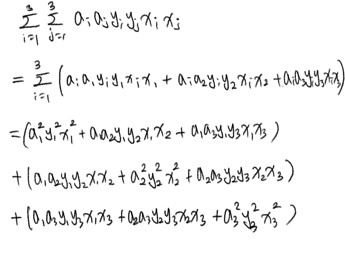 ∑_{i=1}^{3} ∑_{j=1}^{3} a_i a_j y_i y_j x_i x_j
= ∑_{i=1}^{3} (a_i a_1 y_i y_1 x_i x_1 + a_i a_2 y_i y_2 x_i x_2 + a_i a_3 y_i y_3 x_i x_3)
= (a_1^2 y_1^2 x_1^2 + a_1 a_2 y_1 y_2 x_1 x_2 + a_1 a_3 y_1 y_3 x_1 x_3)
+ (a_1 a_2 y_1 y_2 x_1 x_2 + a_2^2 y_2^2 x_2^2 + a_2 a_3 y_2 y_3 x_2 x_3)
+ (a_1 a_3 y_1 y_3 x_1 x_3 + a_2 a_3 y_2 y_3 x_2 x_3 + a_3^2 y_3^2 x_3^2)